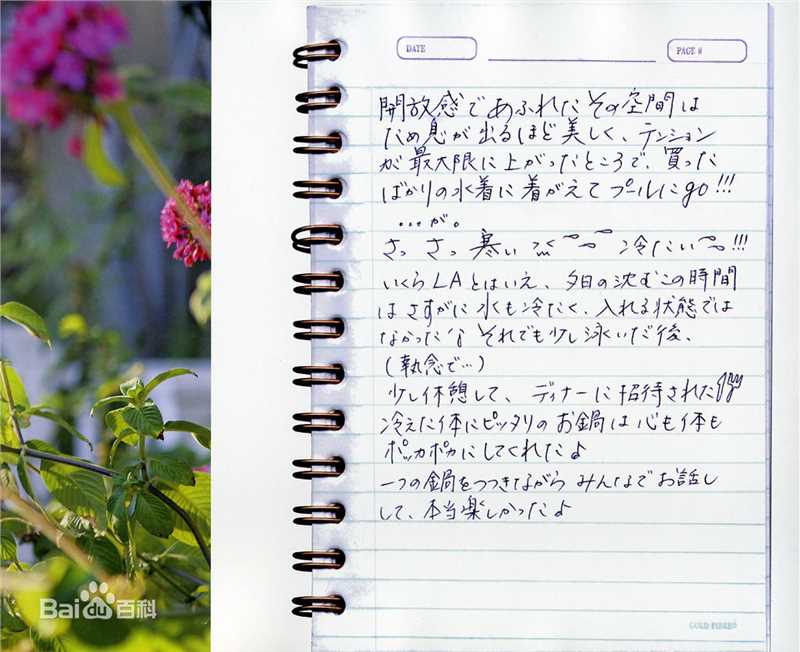 DATE
PAGE #
開放感であふれたその空間は
ため息が出るほど美しく、テンション
が最大限に上がったところで、買った
ばかりの水着に着がえてプールにgo!!!
…が。
さっ さっ 寒い 冷たい !!!
いくらLAとはいえ、夕日の沈むこの時間
はさすがに水も冷たく、入れる状態では
なかったな それでも少し泳いだ後、
(執念で…)
少し休憩して、ディナーに招待された
冷えた体にピッタリのお鍋は心も体も
ポッカポカにしてくれたよ
一つの鍋をつつきながらみんなでお話し
して、本当楽しかったよ
GOLD FIBRE®
Baidu百科